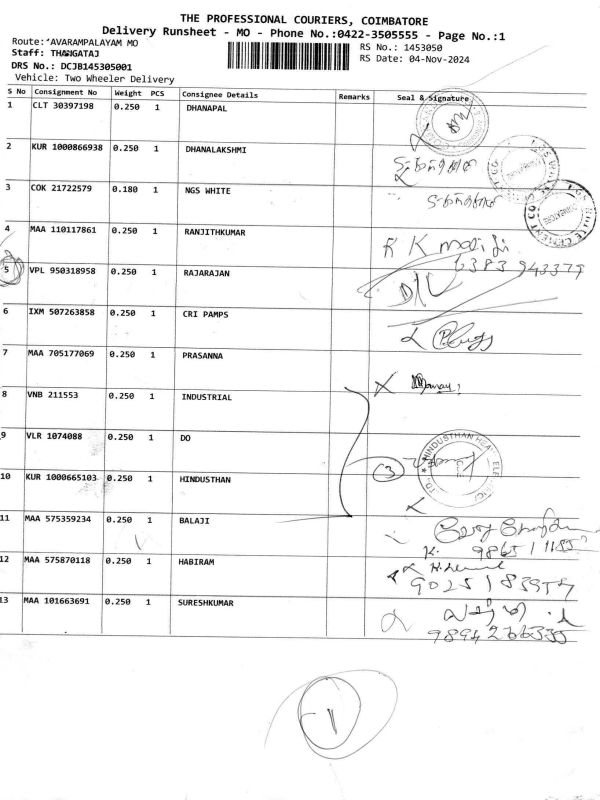 THE PROFESSIONAL COURIERS, COIMBATORE
Delivery Runsheet - MO - Phone No.:0422-3505555 - Page No.:1
Route: AVARAMPALAYAM MO
RS No.: 1453050
Staff: THANGATAJ
RS Date: 04-Nov-2024
DRS No.: DCJB145305001
Vehicle: Two Wheeler Delivery
S No Consignment No Weight PCS Consignee Details Remarks Seal & Signature
1 CLT 30397198 0.250 1 DHANAPAL
2 KUR 1000866938 0.250 1 DHANALAKSHMI
3 COK 21722579 0.180 1 NGS WHITE
4 MAA 110117861 0.250 1 RANJITHKUMAR
6383 943379
5 VPL 950318958 0.250 1 RAJARAJAN
D/L
6 IXM 507263858 0.250 1 CRI PAMPS
7 MAA 705177069 0.250 1 PRASANNA
8 VNB 211553 0.250 1 INDUSTRIAL
9 VLR 1074088 0.250 1 DO
3
10 KUR 1000665103 0.250 1 HINDUSTHAN
11 MAA 575359234 0.250 1 BALAJI
12 MAA 575870118 0.250 1 HABIRAM
13 MAA 101663691 0.250 1 SURESHKUMAR
9894266335
1